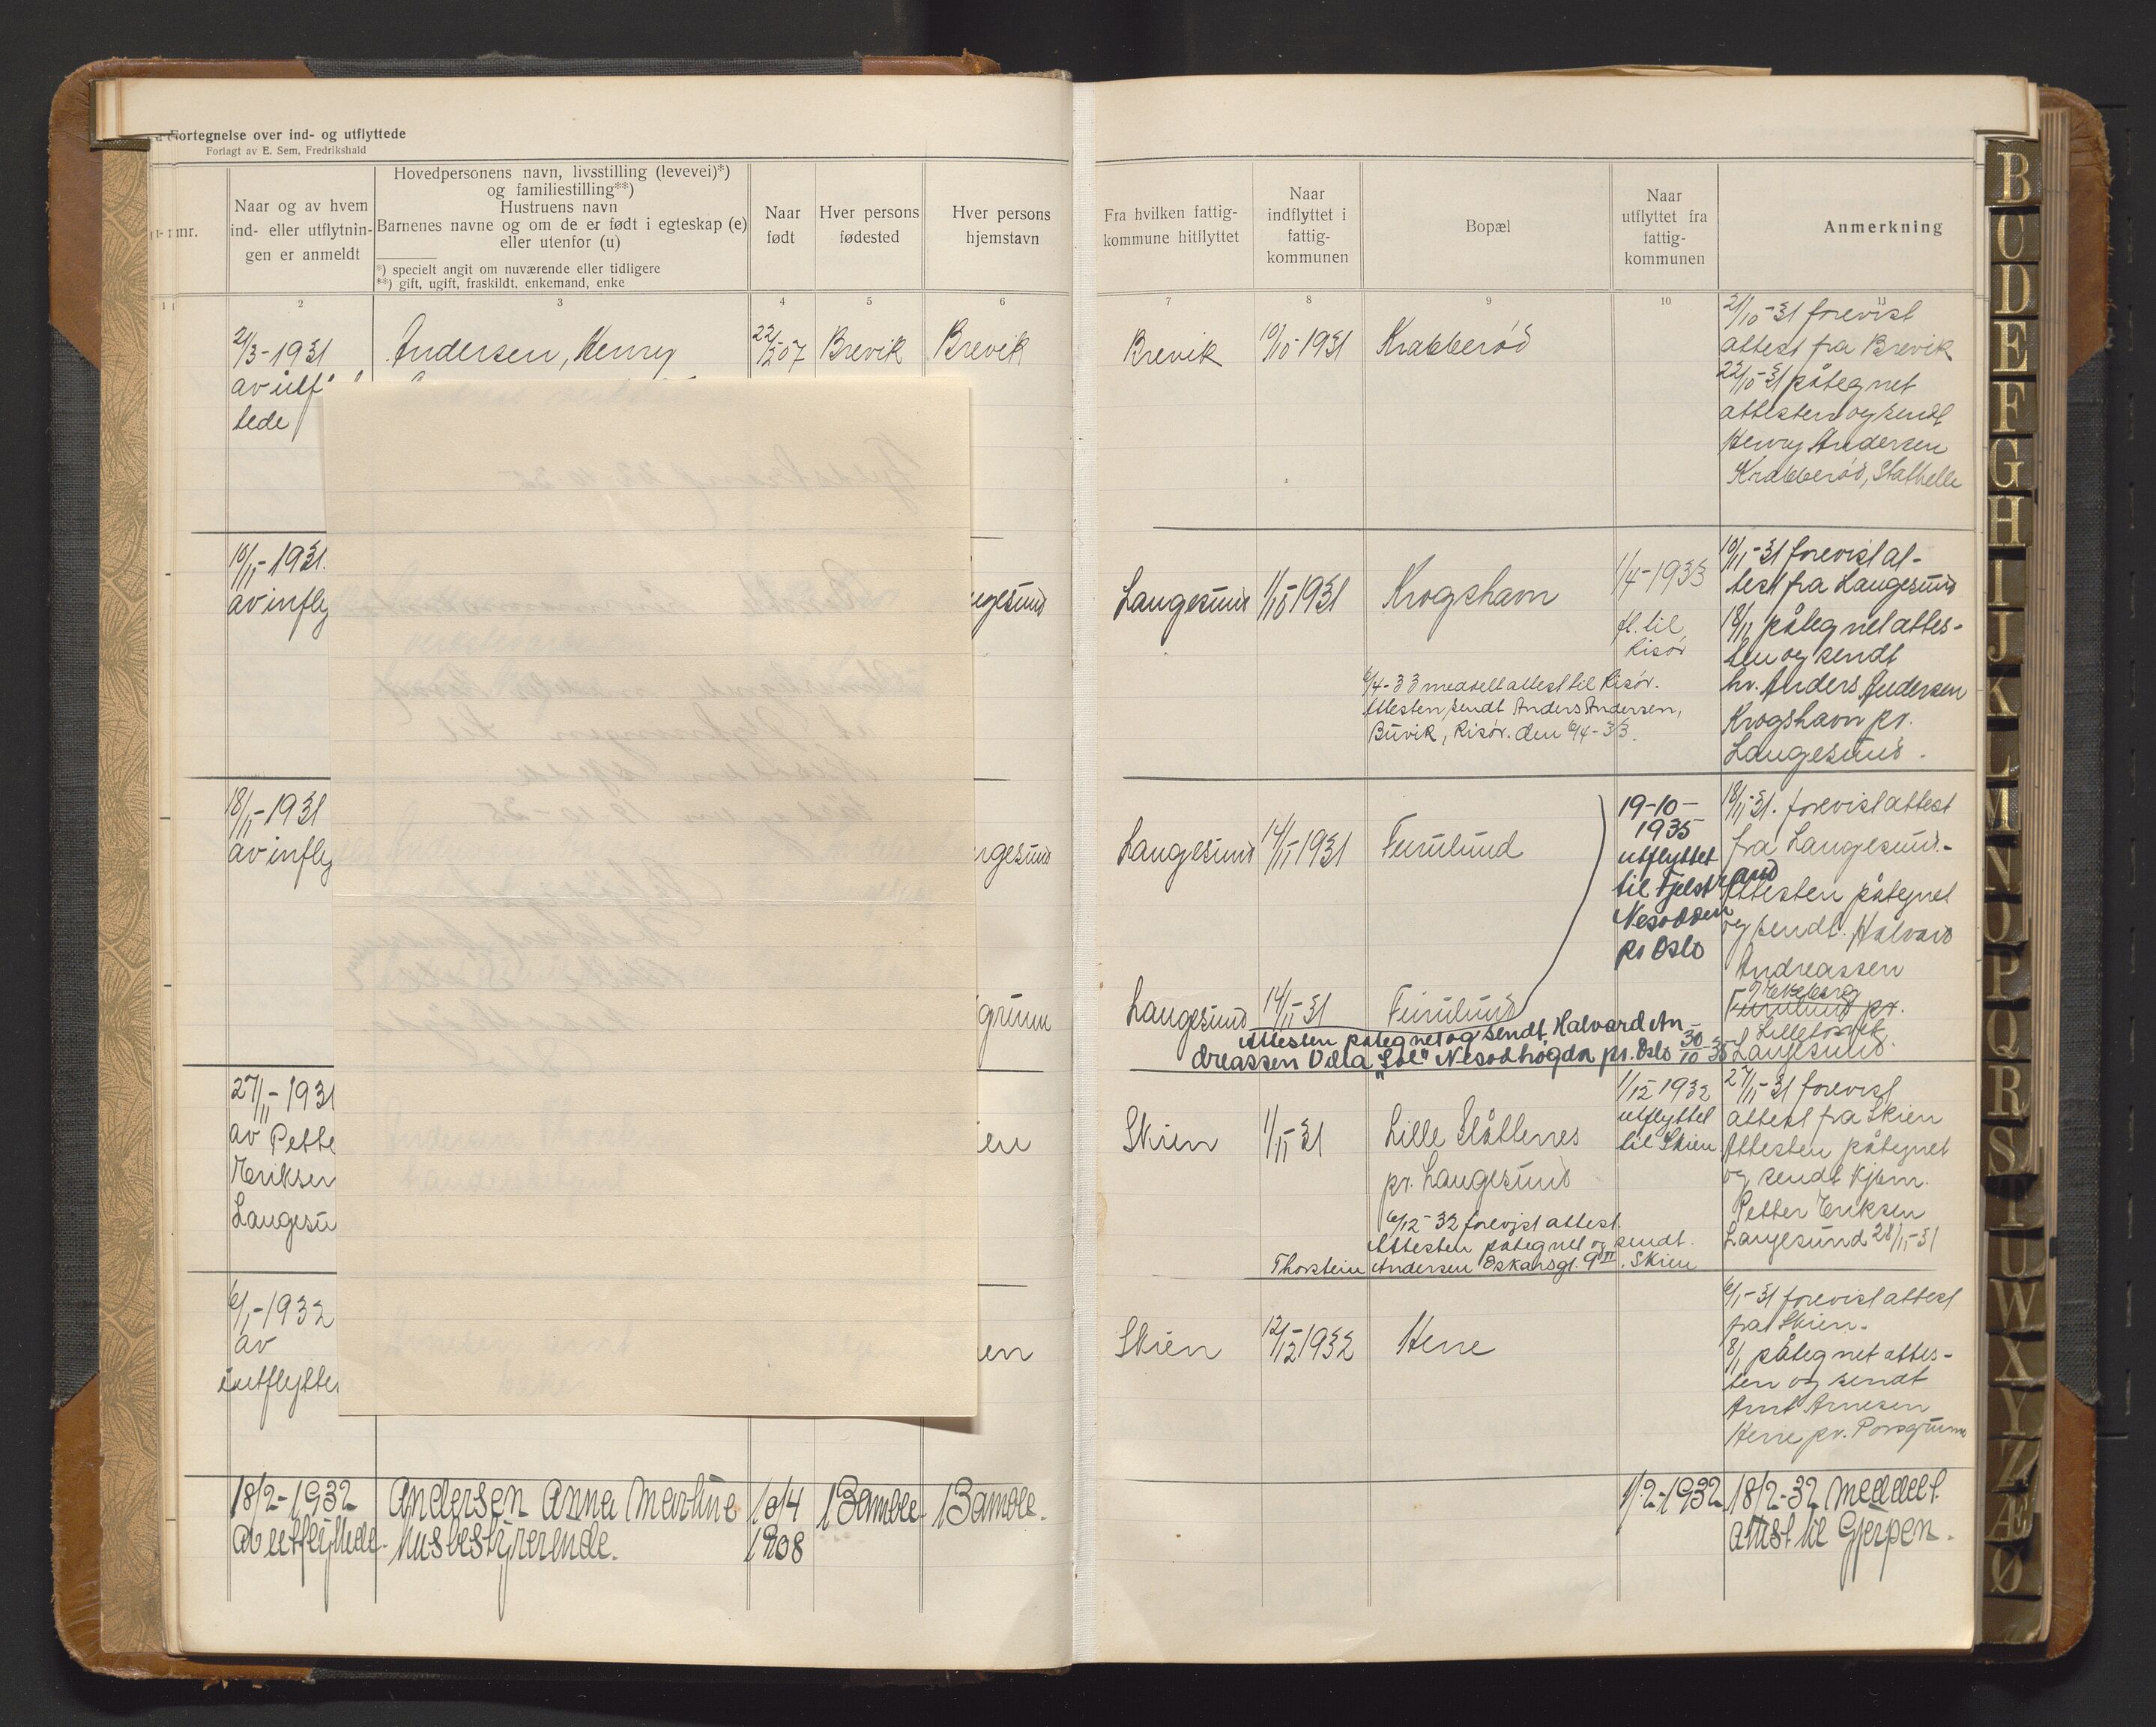 Fortegnelse over ind- og utflyttede
Forlagt av E. Sem, Fredrikshald
nr.
Naar og av hvem
ind- eller utflytnin-
gen er anmeldt
Hovedpersonens navn, livsstilling (levevei)*)
og familiestilling**)
Hustruens navn
Barnenes navne og om de er født i egteskap (e)
eller utenfor (u)
*) specielt angit om nuværende eller tidligere
**) gift, ugift, fraskildt, enkemand, enke
Naar
født
Hver persons
fødested
Hver persons
hjemstavn
Fra hvilken fattig-
kommune hitflyttet
Naar
indflyttet i
fattig-
kommunen
Bopæl
Naar
utflyttet fra
fattig-
kommunen
Anmerkning
1 2 3 4 5 6 7 8 9 10 11
21/3-1931 Andersen, Henry Brevik Brevik
lede
Brevik 10/10-1931 Krabberød
21/10-31 forevist
attest fra Brevik
22/10-31 påtegnet
attesten og sendt
Henry Andersen
Krabberød, Stathelle
10/11-1931.
av infly
ngesund
Langesund 1/10 1931 Krogshavn 1/4-1933
fl. til
Risør
6/4-33 meddelt attest til Risør.
Attesten sendt Anders Andersen,
Buvik, Risør. den 6/4-33.
10/11-31 forevist at-
test fra Langesund
18/11 påtegnet attes-
ten og sendt
hr. Anders Andersen
Krogshavn pr.
Langesund.
18/11-1931
av infly
ngesund
Langesund 14/11 1931 Furulund
19-10-
1935
utflyttet
til Fjelstrand
Nesodden
pr Oslo
18/11-31. forevist attest
fra Langesund.-
Attesten påtegnet
og sendt. Halvard
Andreassen
Furulund pr.
Langesund.
grunn
Langesund 14/11-31 Furulund
Attesten påtegnet og sendt Halvard An-
dreassen Villa "Sol" Nesodhøgda pr. Oslo 30/10-35
27/11-1931
av Pette
Eriksen
Langesu
ien
Skien 1/11-31 Lille Slåttenes
pr. Langesund
1/12 1932
utflyttet
til Skien
6/12-32 forevist attest.
Attesten påtegnet og sendt.
Thorstein Andersen Oskarsgt. 9 II. Skien
27/11-31 forevist
attest fra Skien
Attesten påtegnet
og sendt Kjøm.
Petter Eriksen
Langesund 28/11-31
6/1-1932
av
utflytte
ien
Skien 12/12 1932 Herre
6/1-31 forevist attest
fra Skien.
8/1 påtegnet attes-
ten og sendt
Arnt Arnesen
Herre pr. Porsgrunn
18/2-1932 Andersen Anna Martine 10/4 Bamble Bamble.
av utflyttede. husbestyrerende. 1908
1/2-1932 18/2-32 Meddelt
attest til Gjerpen.
B
C
D
E
F
G
H
I
J
K
L
M
N
O
P
Q
R
S
T
U
W
X
Y
Z
Æ
Ø